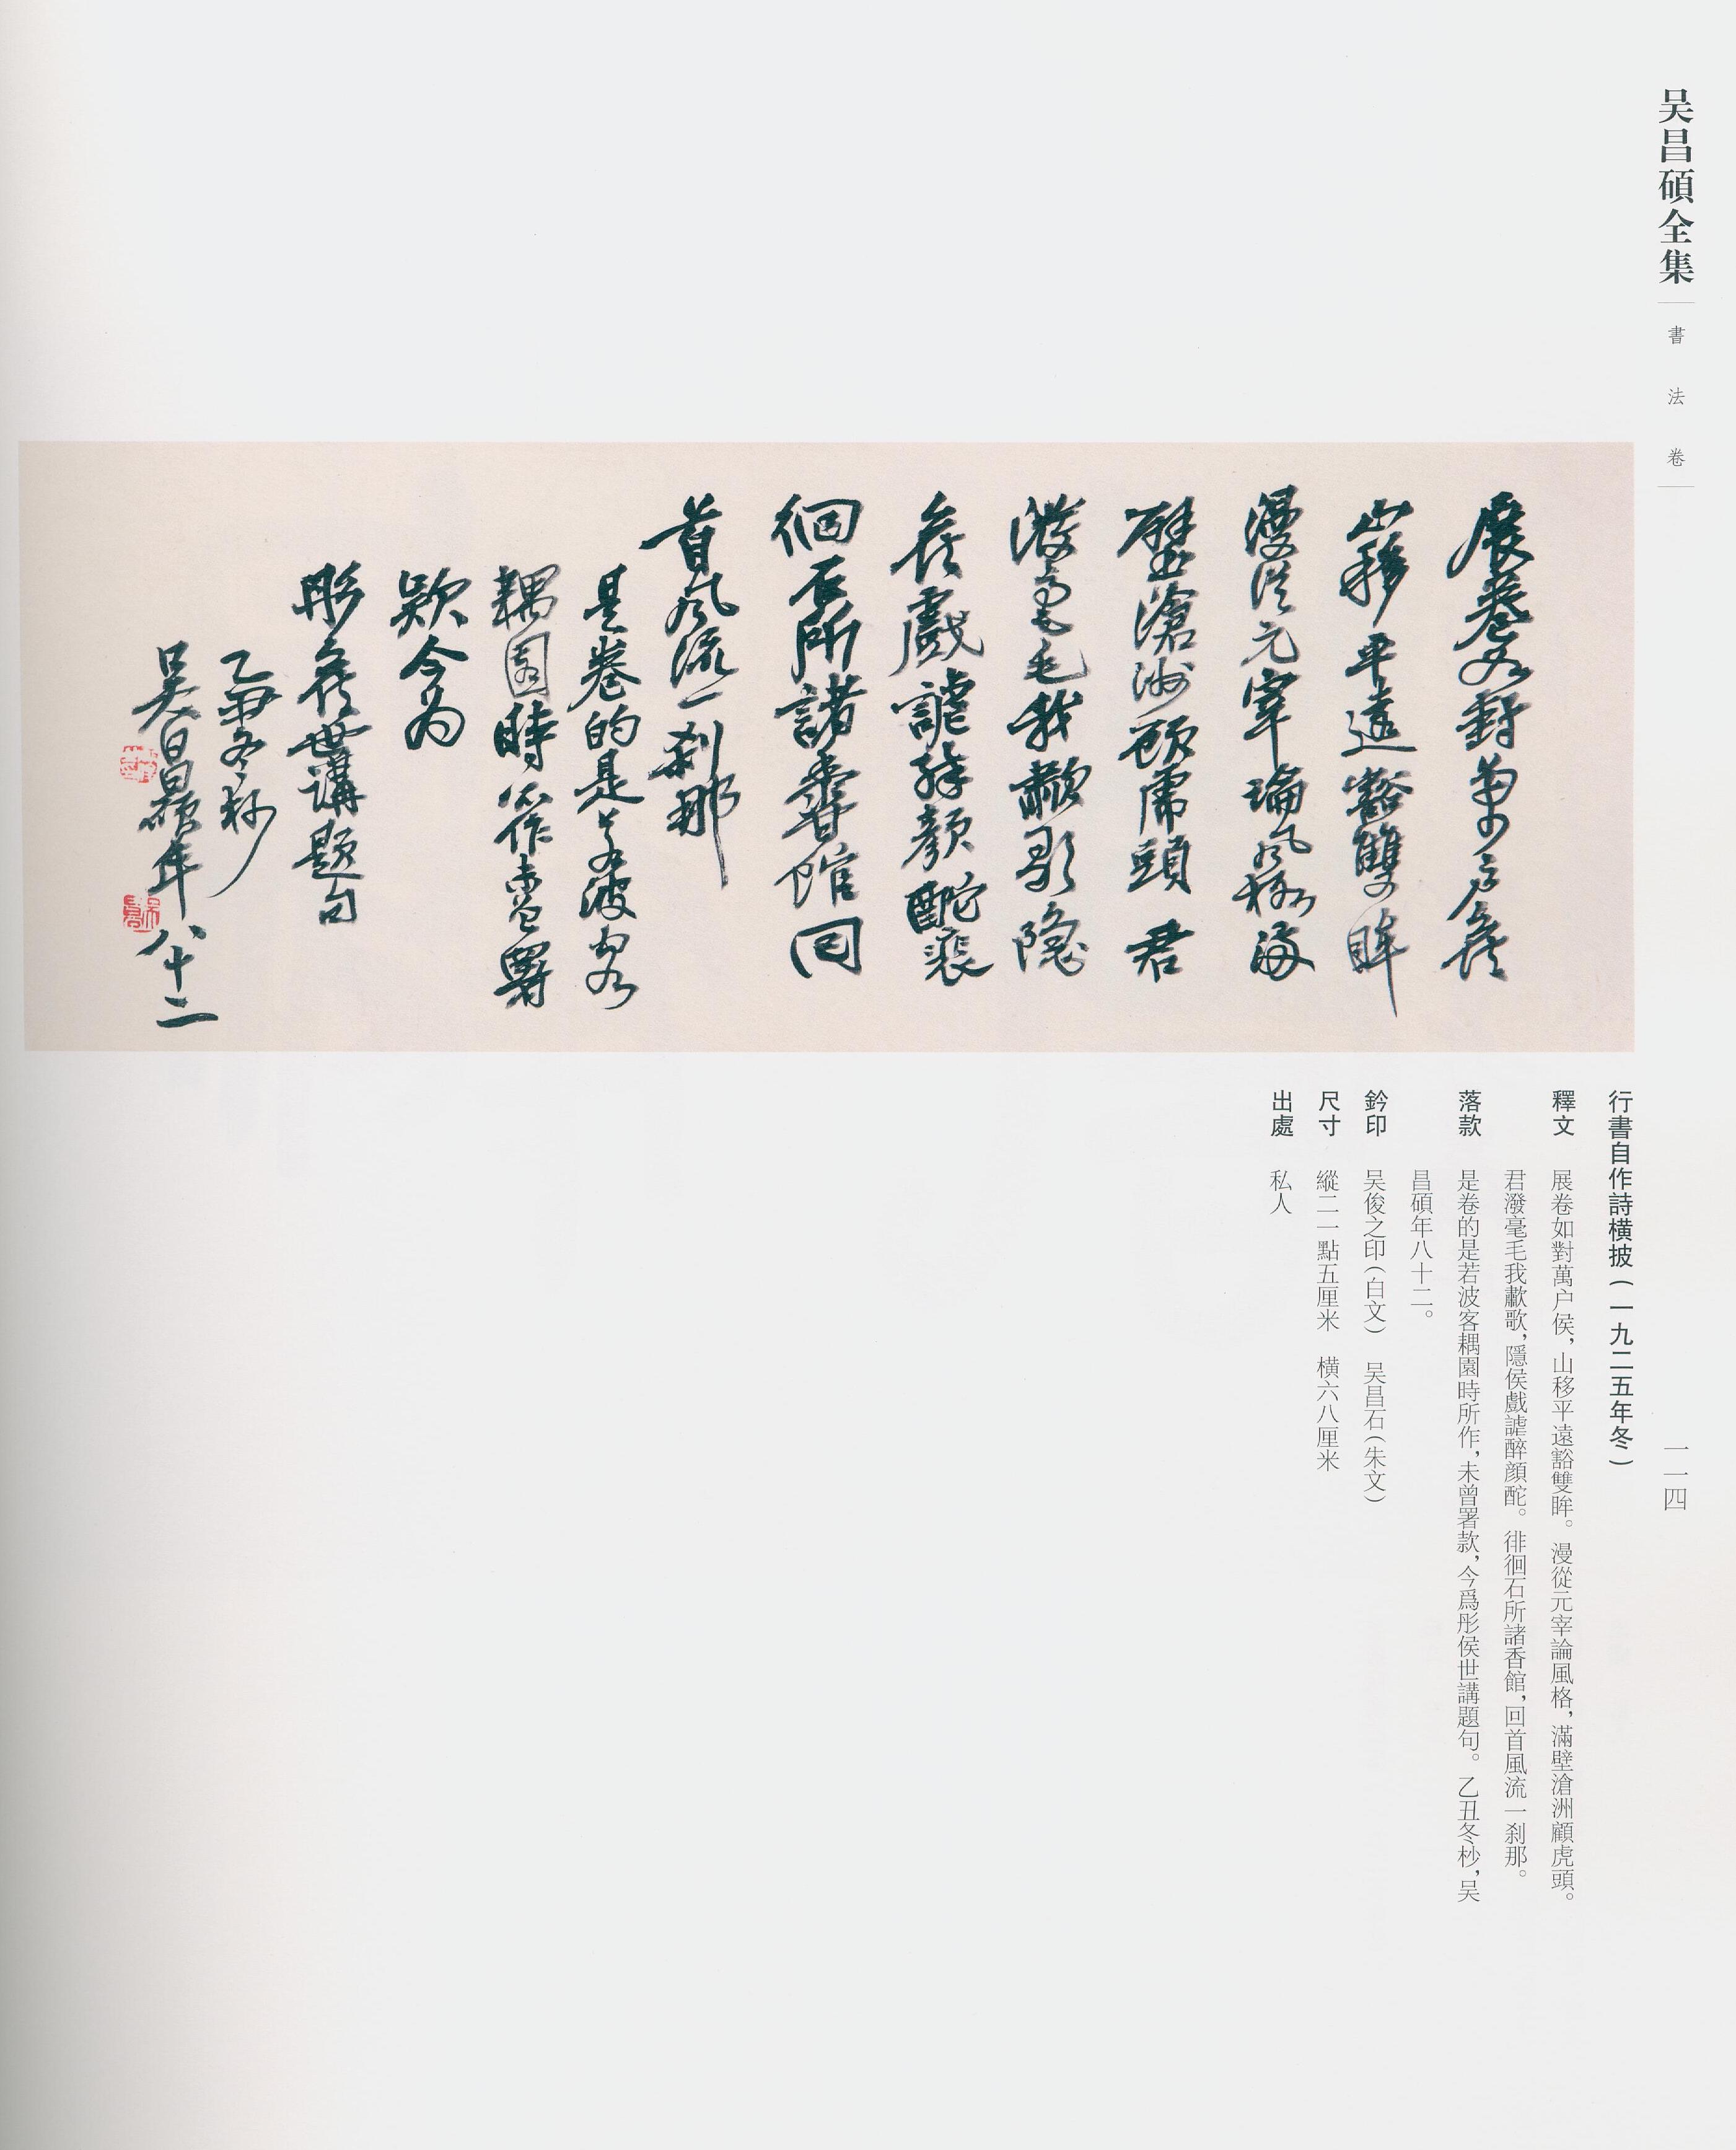 吴昌碩全集
書法卷
展卷如對萬户侯
山移平遠豁雙眸
漫從元宰論風格海
壁滄洲顧虎頭君
潑毫毛我歗歌隱
侯戲謔醉顏酡裴
徊石所諸香館回
首風流一刹那
是卷的是若波客
耦園時所作未曾署
款今為
彤侯世講題句
乙丑冬杪
吳昌碩年八十二
行書自作詩横披(一九二五年冬)
釋文 展卷如對萬户侯,山移平遠豁雙眸。漫從元宰論風格,滿壁滄洲顧虎頭。
君潑毫毛我歗歌,隱侯戲謔醉顔酡。徘徊石所諸香館,回首風流一刹那。
落款 是卷的是若波客耦園時所作,未曾署款,今爲彤侯世講題句。乙丑冬杪,吴
昌碩年八十二。
鈐印 吴俊之印(白文) 吴昌石(朱文)
尺寸 縱二一點五厘米 横六八厘米
出處 私人
一一四